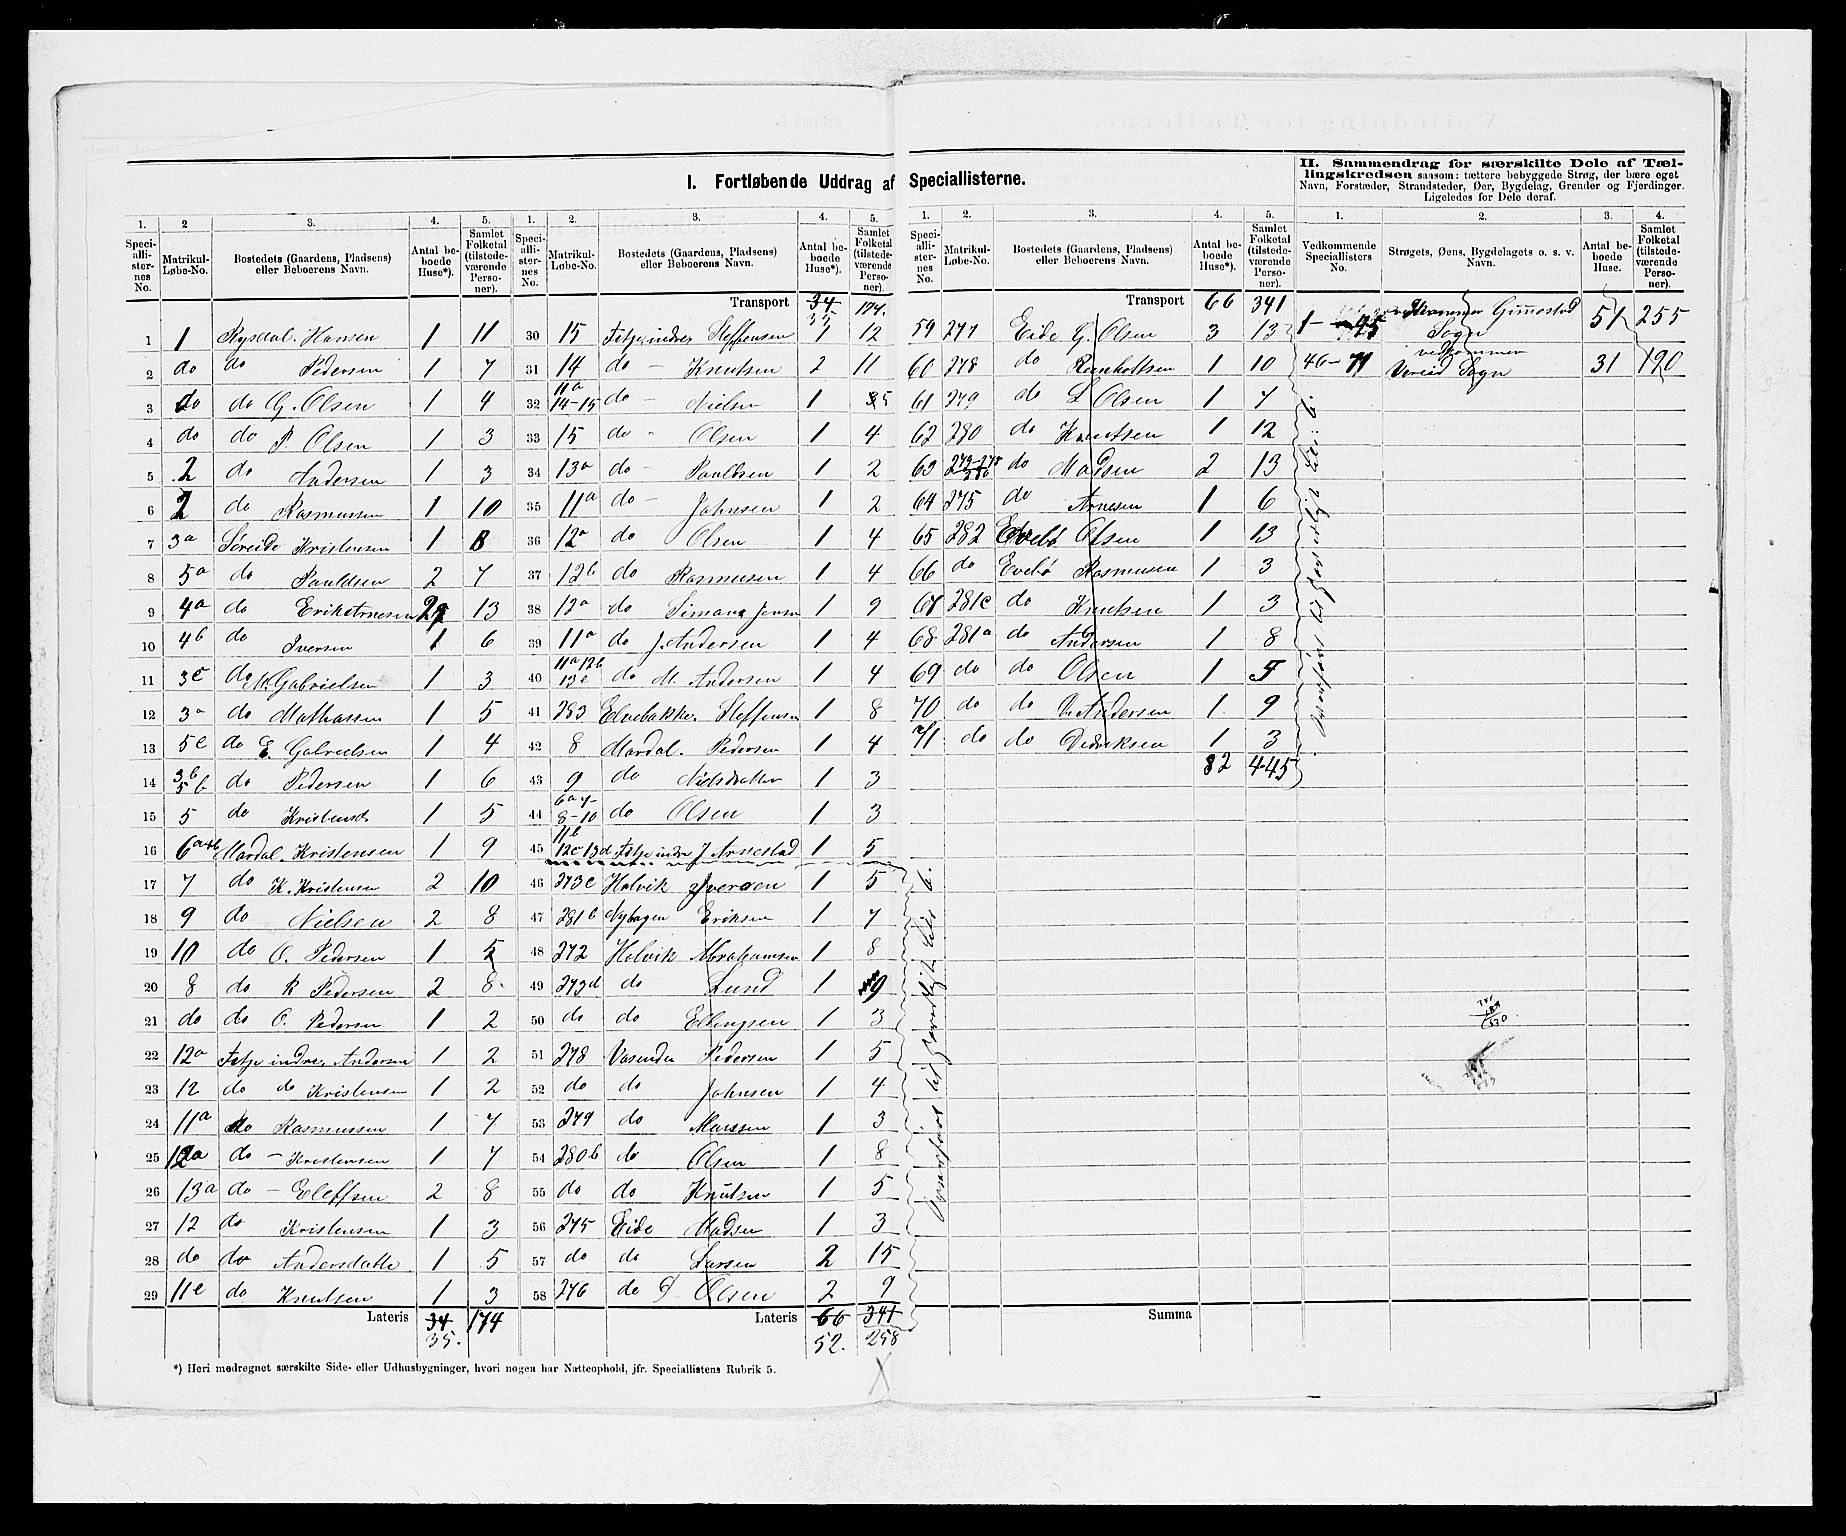 I. Fortløbende Uddrag af Speciallisterne.
II. Sammendrag for særskilte Dele af Tællingskredsen saasom: tættere bebyggede Strøg, der bære eget
Navn, Forstæder, Strandsteder, Øer, Bygdelag, Grender og Fjerdinger.
Ligeledes for Dele deraf.
1. 2 3. 4. 5. 1. 2. 3. 4. 5. 1. 2. 3. 4. 5. 1. 2. 3. 4.
Speciallisternes No. Matrikul-Løbe-No. Bostedets (Gaardens, Pladsens) eller Beboerens Navn. Antal beboede Huse*). Samlet Folketal (tilstedeværende Personer).
Speciallisternes No. Matrikul-Løbe-No. Bostedets (Gaardens, Pladsens) eller Beboerens Navn. Antal beboede Huse*). Samlet Folketal (tilstedeværende Personer).
Speciallisternes No. Matrikul-Løbe-No. Bostedets (Gaardens, Pladsens) eller Beboerens Navn. Antal beboede Huse*). Samlet Folketal (tilstedeværende Personer).
Vedkommende Speciallisters No. Strøgets, Øens, Bygdelagets o. s. v. Navn. Antal beboede Huse. Samlet Folketal (tilstedeværende Personer).
1 1 Rysdal. Hansen 1 11
2 do do Pedersen 1 7
3 do do G. Olsen 1 4
4 do do P. Olsen 1 3
5 2 do Andersen 1 3
6 2 do Rasmussen 1 10
7 3a Søreide Kristensen 1 8
8 5a do Pauldsen 2 7
9 4a do Erik Arnesen 2 13
10 4b do Iversen 1 6
11 3c do M. Gabrielsen 1 3
12 3a do Mathassen 1 5
13 5c do E. Gabrielsen 1 4
14 3b 5b do Pedersen 1 6
15 5 do Kristensd. 1 5
16 6a+b Mardal. Kristensen 1 9
17 7 do K. Kristensen 2 10
18 9 do Nielsen 2 8
19 10 do O. Pedersen 1 5
20 8 do R Pedersen 2 8
21 do do O. Pedersen 1 2
22 12a Fitje indre, Andersen 1 2
23 12 do do Kristensen 1 2
24 11a do Rasmussen 1 7
25 12a do - Kristensen 1 7
26 13a do - Eleffsen 2 8
27 12 do Kristensen 1 3
28 do do Andersdatte 1 5
29 11c do Knutsen 1 3
Lateris 34 174
35.
Transport 34 174.
35
30 15 Fitje indre Steffensen 1 12
31 14 do - Knutsen 2 11
32 11a 14-15 do - Nielsen 1 5
33 15 do - Olsen 1 4
34 13a do - Paulsen 1 2
35 11a do - Johnsen 1 2
36 12a do Olsen 1 4
37 12b do Rasmusen 1 4
38 12a do Simon Jensen 1 9
39 11a do J. Andersen 1 4
40 11a 12b 13c do M. Andersen 1 4
41 283 Elvebakke. Steffensen 1 8
42 8 Mardal. Pedersen 1 4
43 9 do Nielsdatter 1 3
44 6a 7- 8-10 do Olsen 1 3
45 11b 12c 13d Fitje indre J Arnestad 1 5
46 273c Holvik Iversen 1 5
47 281b Nybogen Eriksen 1 7
48 272 Holvik Abrahamsen 1 8
49 273d do Lund 1 9
50 do do Ellingsen 1 3
51 278 Vasenden Pedersen 1 5
52 do do Johnsen 1 4
53 279 do Massen 1 3
54 280b do Olsen 1 8
55 do do Knutsen 1 5
56 275 Eide Madsen 1 3
57 do do Larsen 2 15
58 276 do P. Olsen 2 9
Lateris 66 341
52. 258
Transport 66 341
59 277 Eide G. Olsen 3 13
60 278 do Reinholtsen 1 10
61 279 do L Olsen 1 7
62 280 do Knutsen 1 12
63 do Madsen 2 13
64 275 do Arnesen 1 6
65 282 Evebø Olsen 1 13
66 do Evebø Rasmusen 1 3
67 281c do Knutsen 1 3
68 281a do Andersen 1 8
69 do do Olsen 1 5
70 do do Andersen 1 9
71 do do Didriksen 1 3
82 445
Summa
1-45 vedkommer Gimestad Sogn 51 255
46-71 vedkommer Vereid Sogn 31 190
*) Heri medregnet særskilte Side- eller Udhusbygninger, hvori nogen har Natteophold, jfr. Speciallistens Rubrik 5.